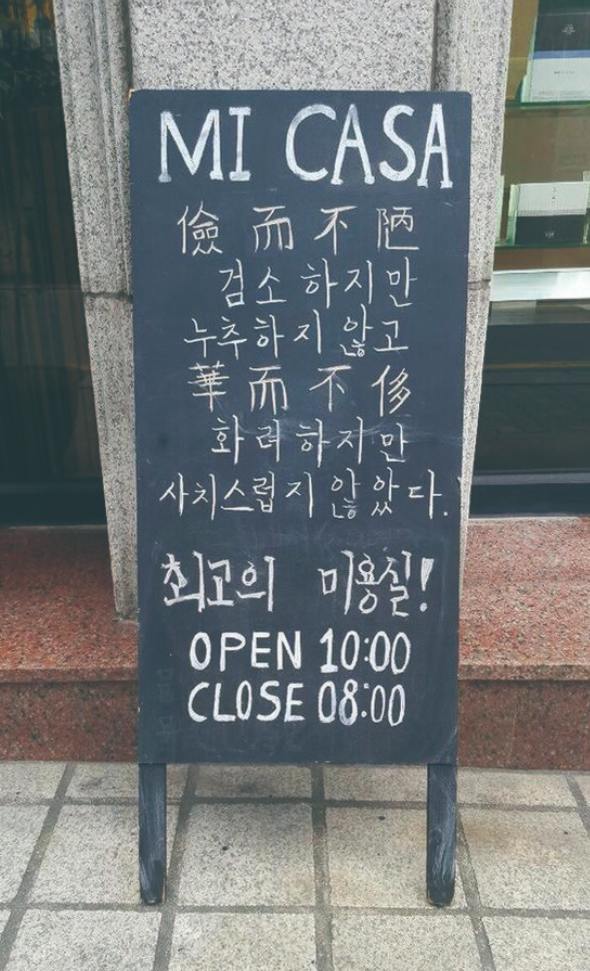 MI CASA
儉而不陋
검소하지만
누추하지 않고
華而不侈
화려하지만
사치스럽지 않았다.
최고의 미용실!
OPEN 10:00
CLOSE 08:00